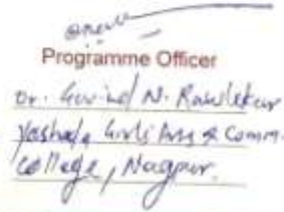 Programme Officer
Dr. Govind N.
Yashoda Girls Arts & Comm.
College, Nagpur.